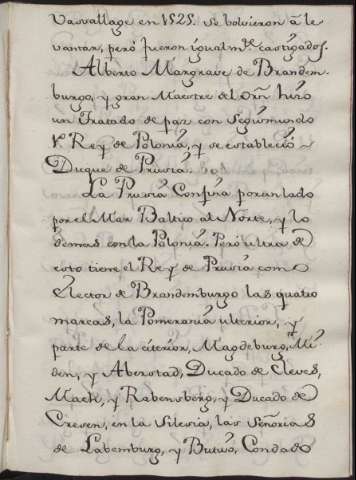 Vasvallage en 1525. se bolvieron à le
vantar, peró fueron igualm.te castigados.
Alberto Margrave de Brandem
burgo, y gran Maestre del orñ hizo
un Tratado de paz con Segismundo
1º. Rey de Polonia, y se estableció
Duque de Prusia.
La Prusia Confina por un lado
por el Mar Baltico al Norte, y lo
demas con la Polonia. Peró ultra de
esto tiene el Rey de Prusia como
Elector de Brandemburgo las quatro
marcas, la Pomerania ulterior, y
parte de la citerior, Magdeburg, Mi
den, y Aberstad, Ducado de Cleves,
Mack, y Rabensberg, y Ducado de
Cresen, en la Silesia, las Señorias
de Labemburg, y Butus, Condado